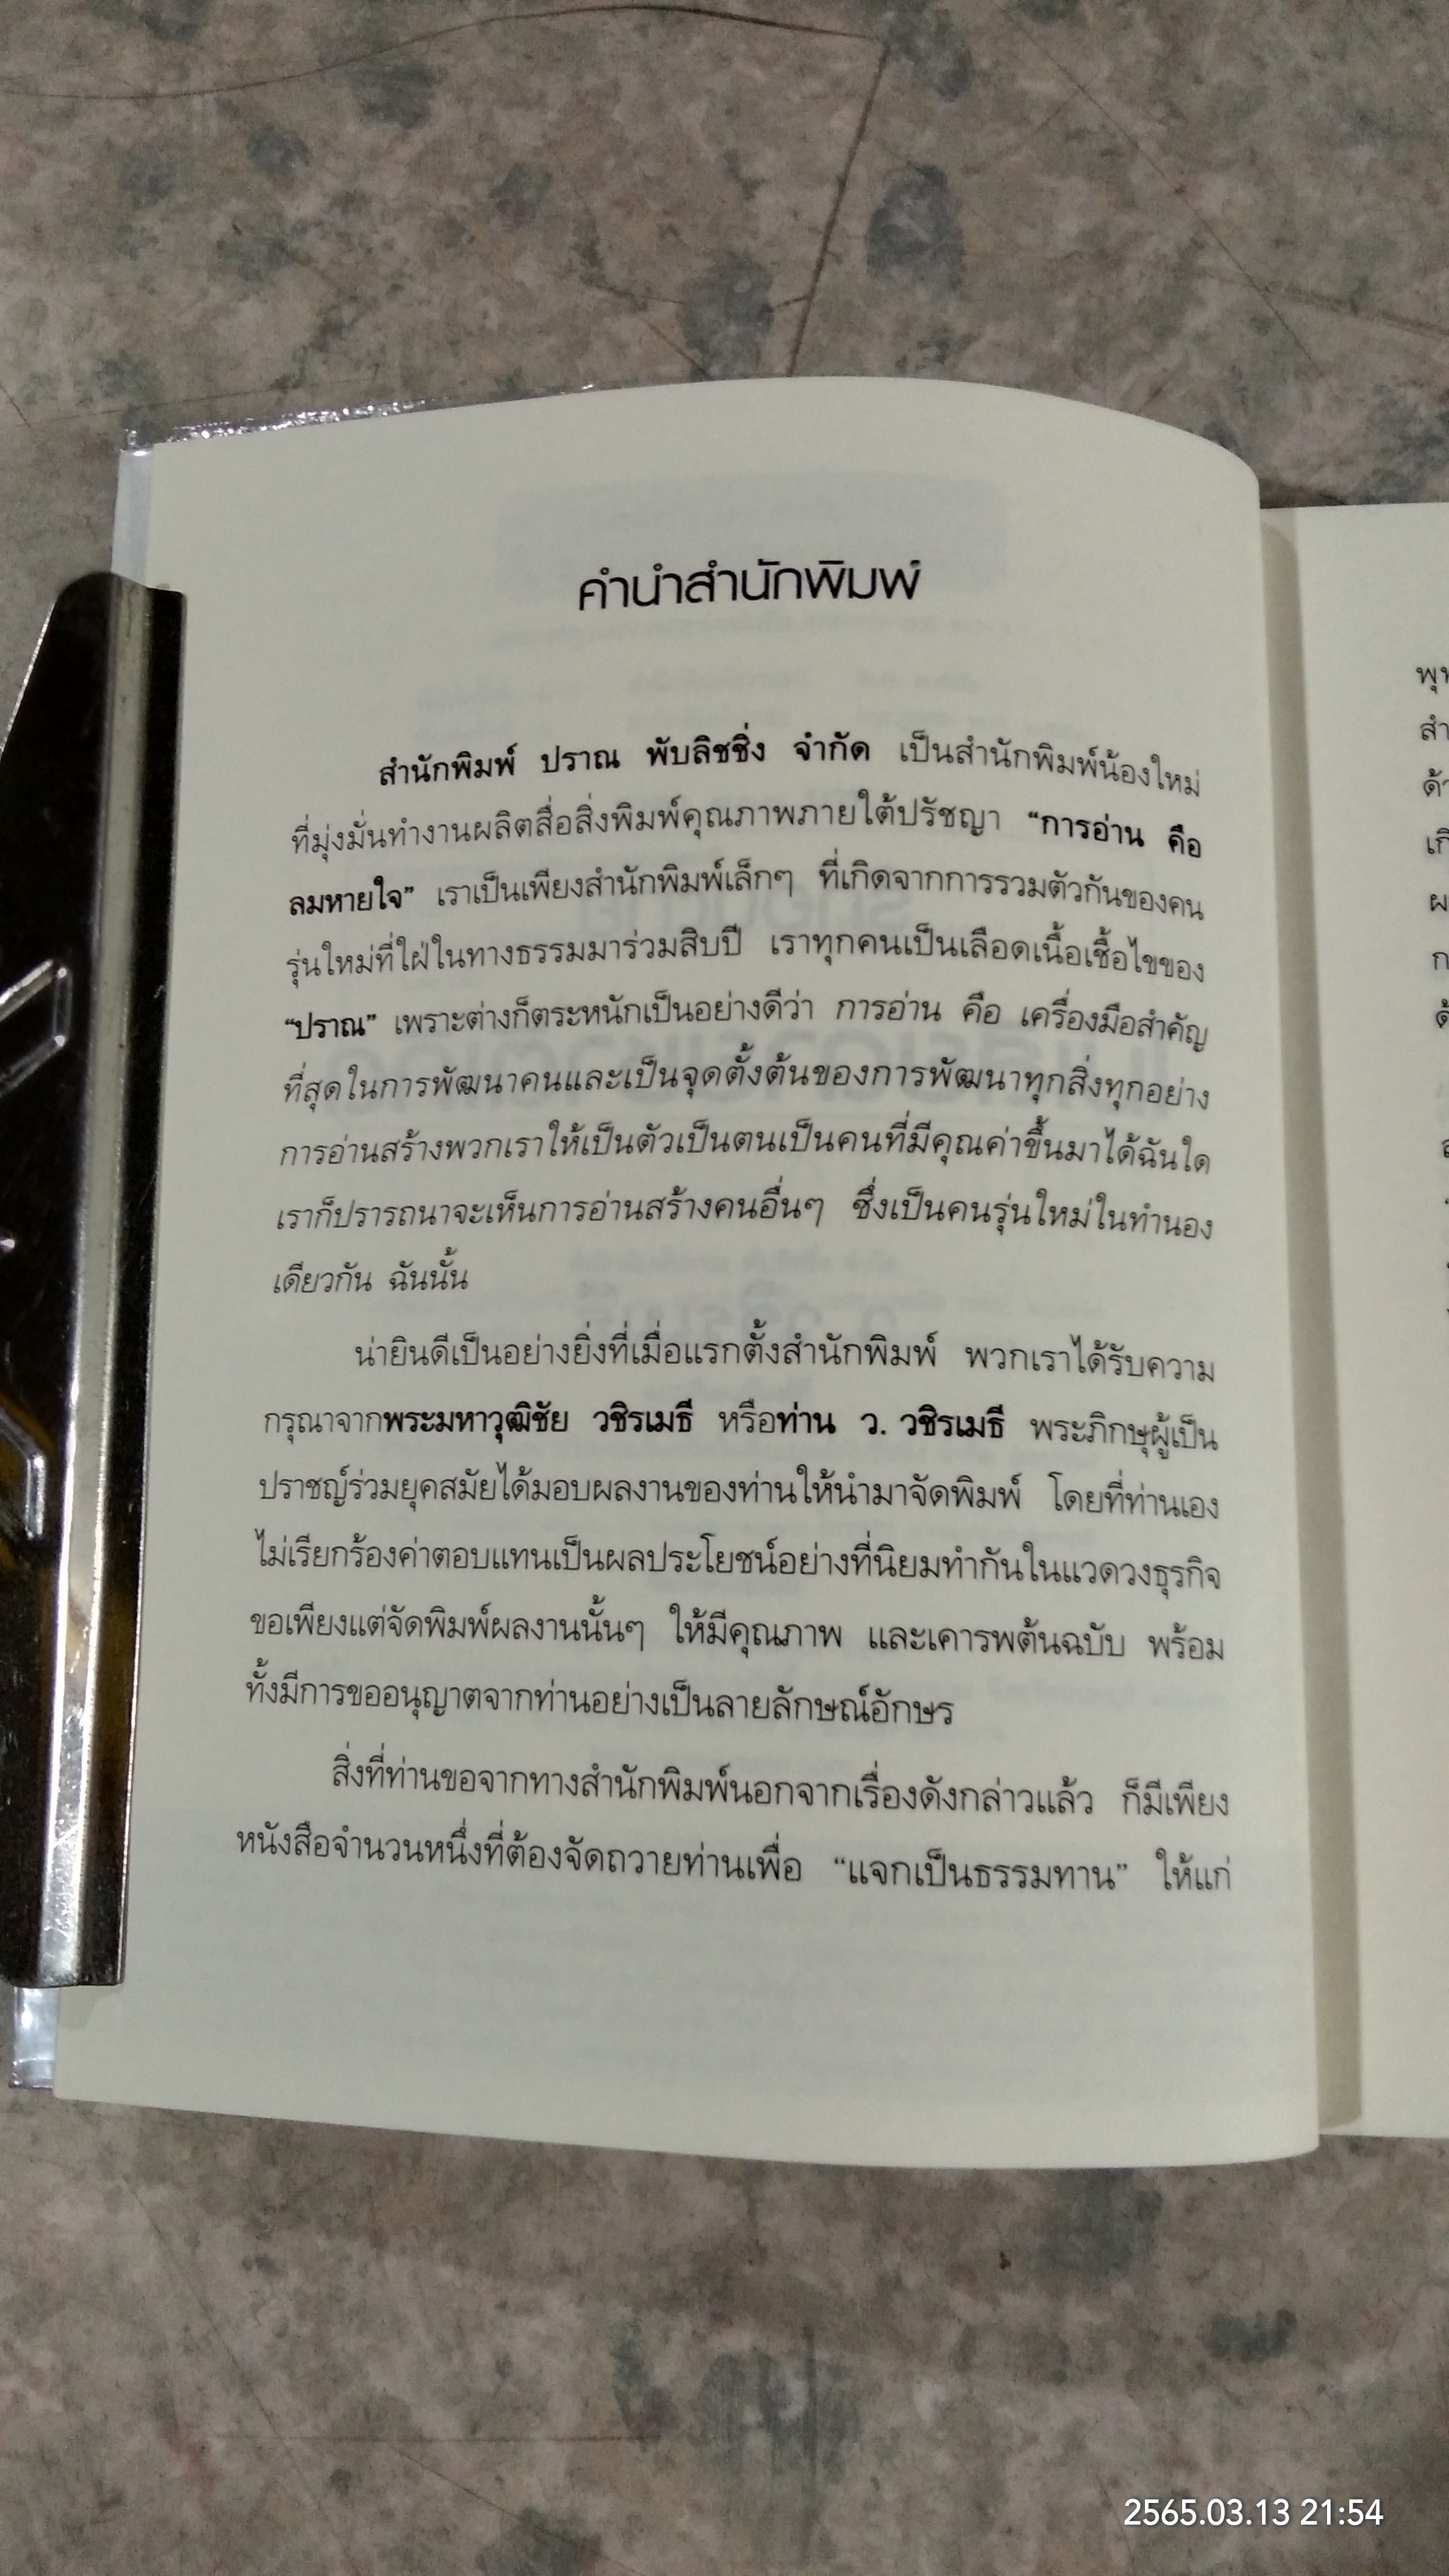 คำนำสำนักพิมพ์
สำนักพิมพ์ ปราณ พับลิชชิ่ง จำกัด เป็นสำนักพิมพ์น้องใหม่
ที่มุ่งมั่นทำงานผลิตสื่อสิ่งพิมพ์คุณภาพภายใต้ปรัชญา “การอ่าน คือ
ลมหายใจ” เราเป็นเพียงสำนักพิมพ์เล็กๆ ที่เกิดจากการรวมตัวกันของคน
รุ่นใหม่ที่ใฝ่ในทางธรรมมาร่วมสิบปี เราทุกคนเป็นเลือดเนื้อเชื้อไขของ
“ปราณ” เพราะต่างก็ตระหนักเป็นอย่างดีว่า การอ่าน คือ เครื่องมือสำคัญ
ที่สุดในการพัฒนาคนและเป็นจุดตั้งต้นของการพัฒนาทุกสิ่งทุกอย่าง
การอ่านสร้างพวกเราให้เป็นตัวเป็นตนเป็นคนที่มีคุณค่าขึ้นมาได้ฉันใด
เราก็ปรารถนาจะเห็นการอ่านสร้างคนอื่นๆ ซึ่งเป็นคนรุ่นใหม่ในทำนอง
เดียวกัน ฉันนั้น
น่ายินดีเป็นอย่างยิ่งที่เมื่อแรกตั้งสำนักพิมพ์ พวกเราได้รับความ
กรุณาจากพระมหาวุฒิชัย วชิรเมธี หรือท่าน ว. วชิรเมธี พระภิกษุผู้เป็น
ปราชญ์ร่วมยุคสมัยได้มอบผลงานของท่านให้นำมาจัดพิมพ์ โดยที่ท่านเอง
ไม่เรียกร้องค่าตอบแทนเป็นผลประโยชน์อย่างที่นิยมทำกันในแวดวงธุรกิจ
ขอเพียงแต่จัดพิมพ์ผลงานนั้นๆ ให้มีคุณภาพ และเคารพต้นฉบับ พร้อม
ทั้งมีการขออนุญาตจากท่านอย่างเป็นลายลักษณ์อักษร
สิ่งที่ท่านขอจากทางสำนักพิมพ์นอกจากเรื่องดังกล่าวแล้ว ก็มีเพียง
หนังสือจำนวนหนึ่งที่ต้องจัดถวายท่านเพื่อ “แจกเป็นธรรมทาน” ให้แก่
2565.03.13 21:54